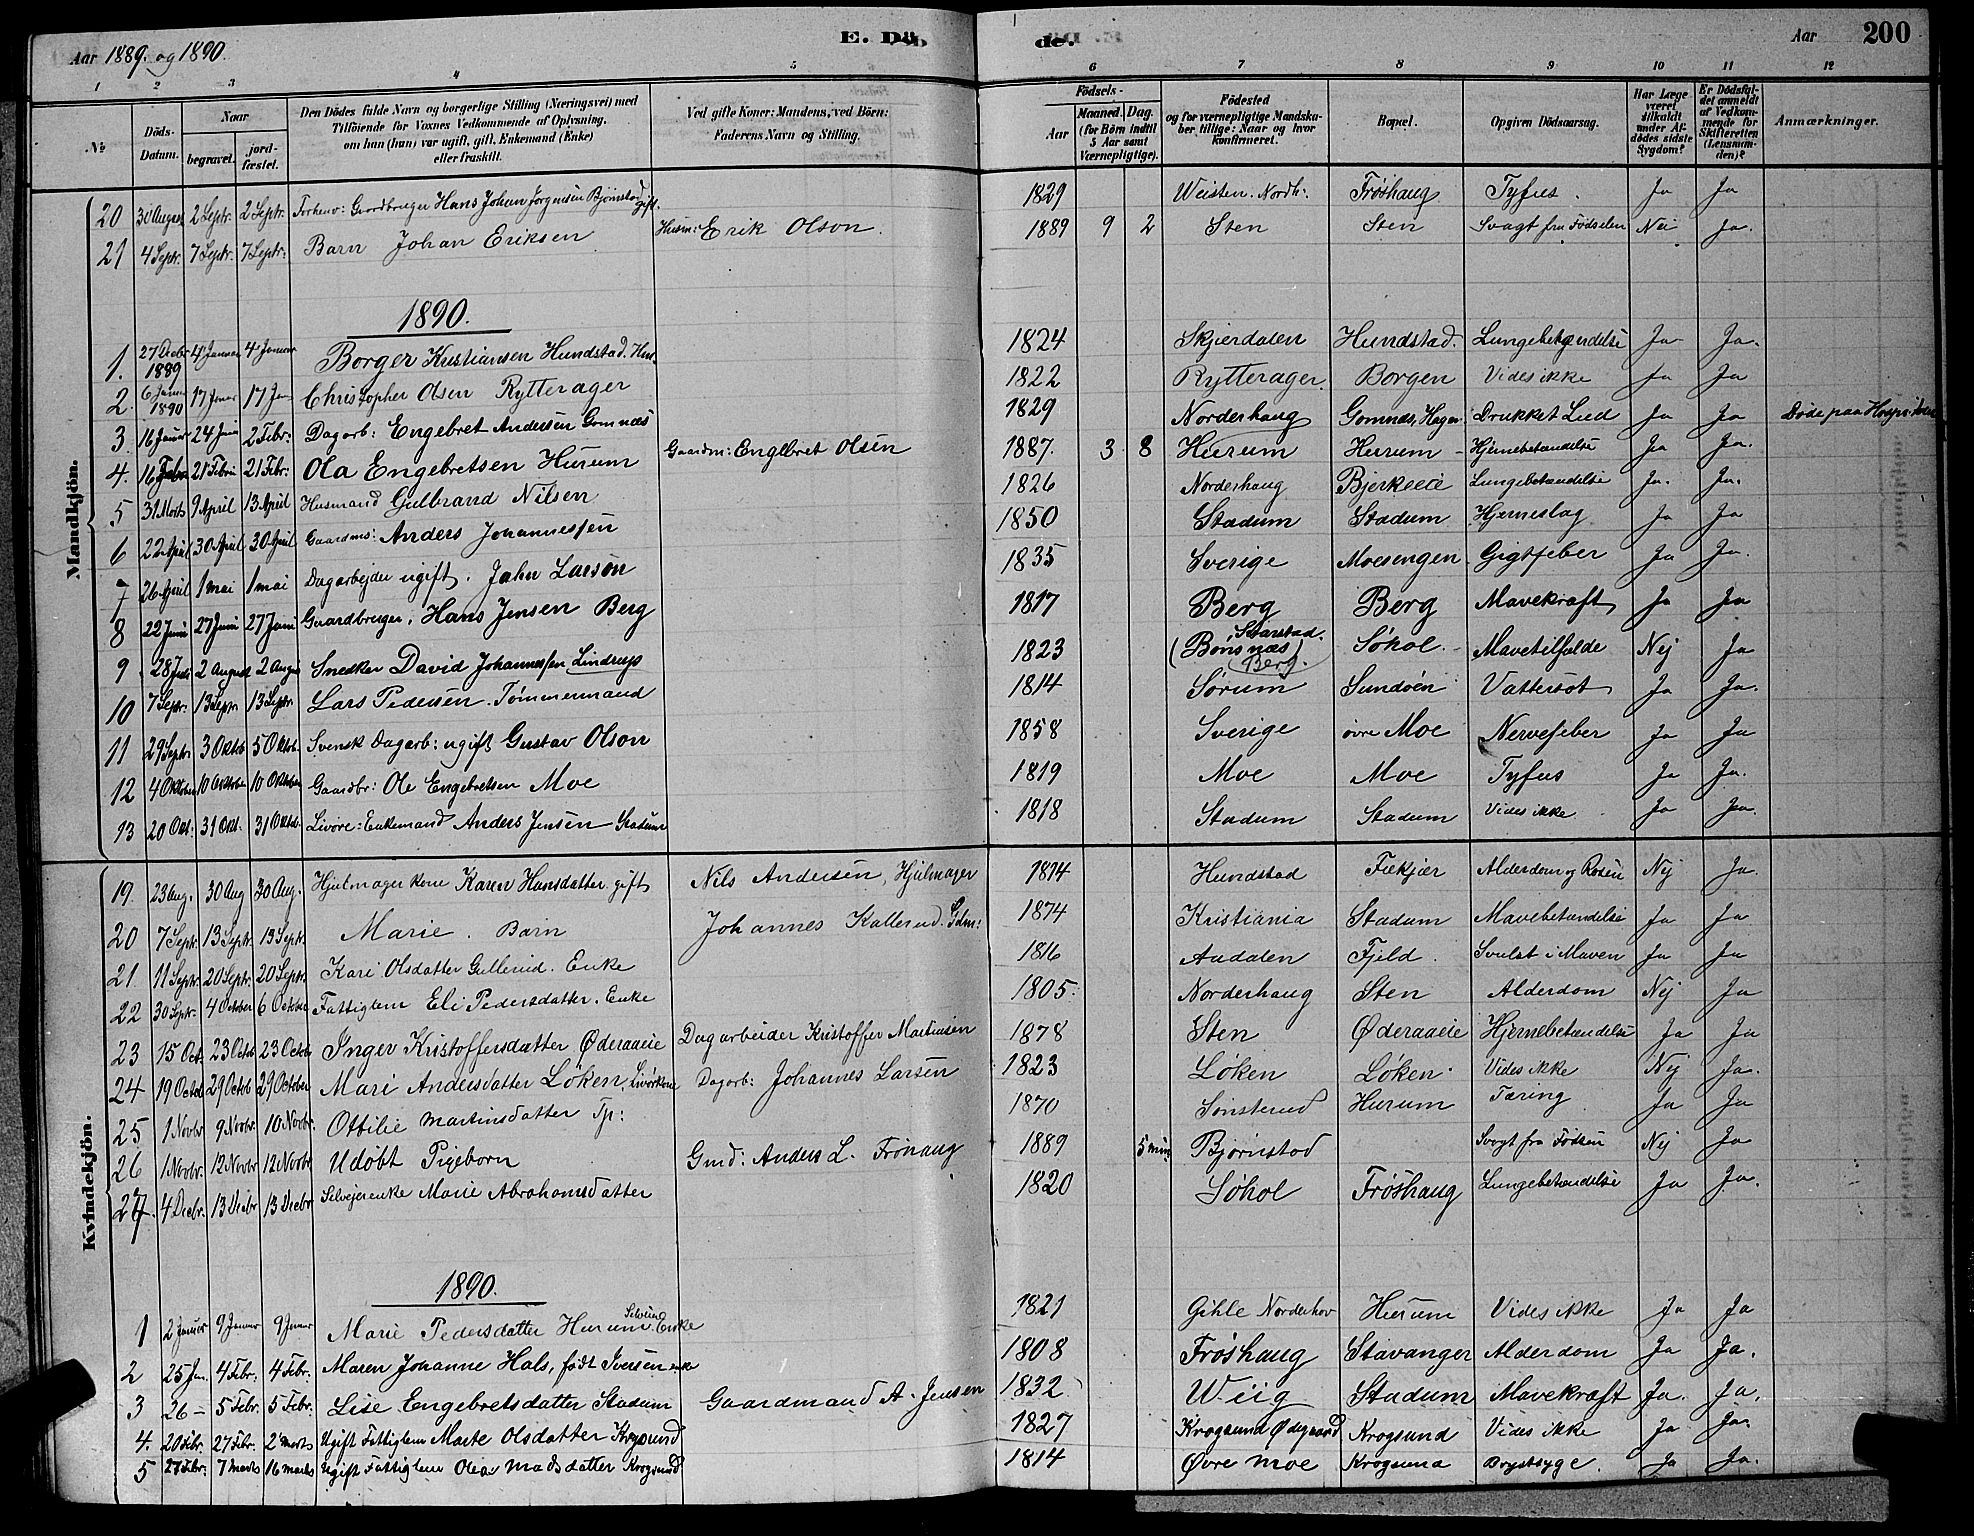 Aar 1889. og 1890. E. Dö de. Aar 200
1 2 3 4 5 6 7 8 9 10 11 12
№ Döds-Datum. Naar begravet. jord-fæstet. Den Dödes fulde Navn og borgerlige Stilling (Næringsvei) med Tilföiende for Voxnes Vedkommende af Oplysning, om han (hun) var ugift, gift, Enkemand (Enke) eller fraskilt. Ved gifte Koner: Mandens, ved Börn: Faderens Navn og Stilling. Födsels- Aar Maaned. Dag. (for Börn indtil 5 Aar samt Værnepligtige). Födested og for værnepligtige Mandskaber tillige: Naar og hvor konfirmeret. Bopæl. Opgiven Dödsaarsag. Har Læge været tilkaldt under Afdödes sidste Sygdom? Er Dödsfaldet anmeldt af Vedkommende for Skifteretten (Lensmanden)? Anmærkninger.
Mandkjön.
20 31 August 2 Septr. 2 Septr. Forhenv: Gaardbruger Hans Johan Jørgensen Bjørnstad gift. 1829 Weisten. Nordh: Frøshaug Tyfus. Ja Ja
21 4 Septr. 7 Septr. 7 Septr: Barn Johan Eriksen Husm: Erik Olson. 1889 9 2 Sten Sten Svagt fra Fødselen Nei Ja.
1890.
1. 27 Decbr 1889 4 Januar 4 Januar Borger Kristiansen Hundstad. Hus. 1824 Skjerdalen Hundstad. Lungebetændelse Ja Ja.
2. 6 Januar 1890 17 Januar 17 Jan Christopher Olsen Rytterager 1822 Rytterager Borgen Vides ikke Ja Ja
3. 16 Januar 24 Jan 2 Febr: Dagarb: Engebret Andersen Gomnæs 1829 Norderhaug Gomnæs, Hagen Drukket Lud Ja Ja Døde paa Hospitalet
4. 16 Febr 21 Febru 21 Febr: Ola Engebretsen Hurum Gaardm: Englbret Olsen 1887. 3 8 Hurum Hurum - Hjernebetændelse Ja Ja.
5 31 Marts 9 April 13 April Husmand Gulbrand Nilsen 1826 Norderhaug Bjerkeeie Lungebetændelse Ja. Ja.
6 22 April 30 April 30 April Gaardms: Anders Johannessen 1850 Stadum Stadum Hjerneslag Ja Ja
7 26 April 1 mai 1 mai Dagarbejder ugift. Jahn Larson 1835 Sverige Moesengen Gigtfeber Ja Ja.
8 22 Juni 27 Juni 27 Juni Gaardbruger, Hans Jensen Berg 1817 Berg Berg Mavekræft Ja Ja
9 28 Juli 2 August 2 Augus Snedker David Johannessen Lindrup 1823 (Bønsnæs) Svarstad. Berg. Søhol Mavetilfælde Nej Ja
10 7 Septr. 13 Septr 13 Septr. Lars Pedersen. Tømmermand 1814 Sørum Sundøen Vattersot Ja Ja.
11 29 Septr. 3 Oktob 5 Oktob. Svensk Dagarb: ugift Gustav Olson 1858 Sverige øvre Moe Nervefeber Ja Ja
12 4 Oktober 10 Octobe 10 Oktober Gaardbr: Ole Engebretsen Moe 1819 Moe Moe Tyfus Ja Ja.
13 20 Okt: 31 Okt. 31 Oktob. Livøre: Enkemand Anders Jensen Stadum 1818 Stadum Stadum Vides ikke Ja Ja.
Kvindekjön.
19. 23 Aug. 30 Aug 30 Aug. Hjulmager kone Karen Hansdatter gift Nils Andersen, Hjulmager 1814 Hundstad Fækjær Alderdom og Rosen Nej Ja.
20 7 Septr. 13 Septr. 13 Septr. Marie. Barn Johannes Kallerud. 1874 Kristiania Stadum Mavebetændelse Ja Ja
21 11 Septr. 20 Septr. 20 Septr. Kari Olsdatter Gullerud. Enke 1816 Aadalen Fjeld. Svulst i Maven Ja Ja
22 30 Septr. 4 October 6 October Fattiglem Eli Pedersdatter. Enke 1805. Norderhaug Sten Alderdom Nej Ja
23 15 Oct. 23 Octob 23 Octob Inger Kristoffersdatter Øderaaeie Dagarbeider Kristoffer Martinsen 1878 Sten Øderaaeie Hjernebetændelse Ja Ja
24 19 Octob 29 Octob 29 October Mari Andersdatter Løken, Livørkone Dagarb: Johannes Larsen 1823 Løken Løken. Vides ikke Nej Ja.
25 1 Novbr 9 Novbr. 10 Novbr. Ottilie Martinsdatter Tp: 1870 Sønsterud Hurum Tæring Ja Ja
26 1 Novbr. 12 Novbr 12 Novbr Udøbt Pigebarn Gmd: Anders L. Frøhaug 1889 5 min Bjørnstad Svagt fra Fødsen Nej Ja
27. 4 Decbr. 13 Decbr 13 Decbr Selvejerenke Marie Abrahamsdatter 1820 Søhol Frøshaug Lungebetændelse Ja Ja.
1890.
1 2 Januar 9 Januar 9 Januar Marie Pedersdatter Hurum Enke 1821 Gihle Norderhov Hurum Vides ikke Ja Ja
2 25 Jan. 4 Febr. 4 Febr. Maren Johanne Hals, født Iversen enke 1808 Frøshaug Stavanger Alderdom Ja Ja.
3 26 - 5 Febr. 5 Febr. Lise Engebretsdatter Stadum Gaardmand A. Jensen 1832 Wiig Stadum Mavekræft Ja. Ja.
4. 20 Febr. 27 Febr. 2 marts Ugift Fattiglem Marte Olsdatter Krogsund 1827 Krogsund Ødegaard Krogsund Vides ikke Ja Ja.
5 27 Febr. 7 marts 16 marts Ugift Fattiglem Olea Madsdatter Krogsund 1814 Øvre moe Krogsund Brystsyge. Ja Ja.